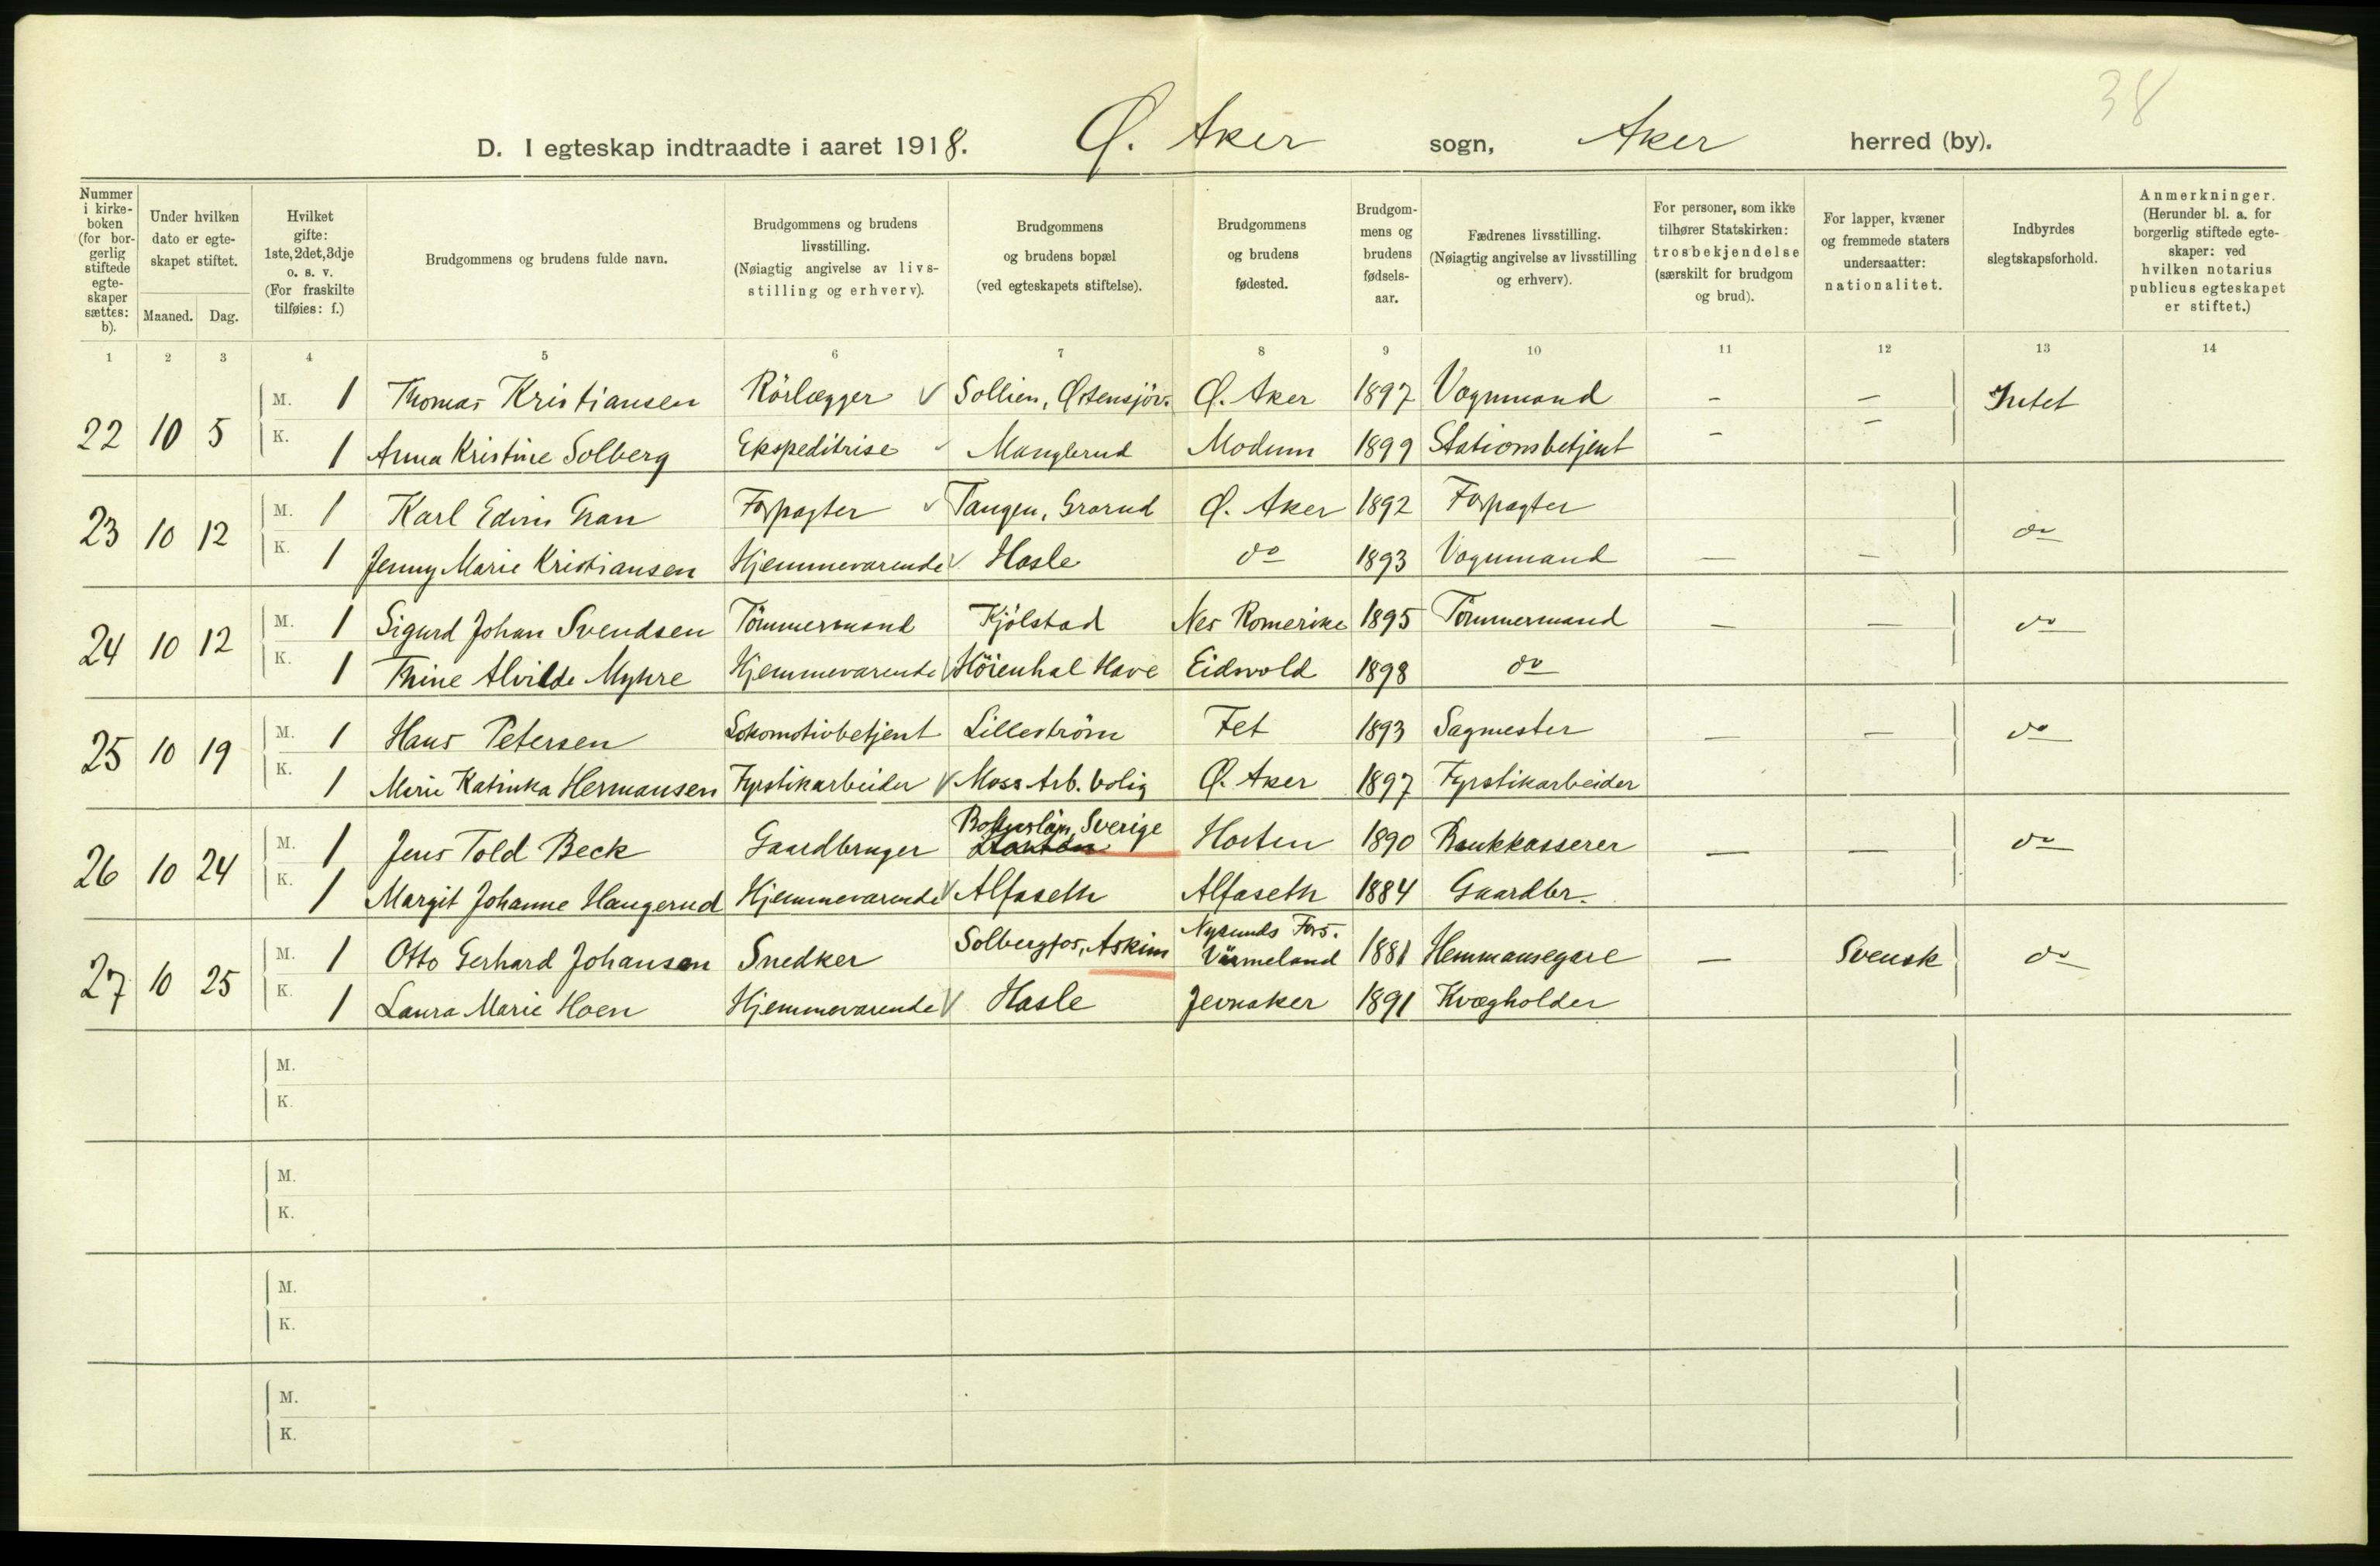 38
D. I egteskap indtraadte i aaret 1918. Ø. Aker sogn, Aker herred (by).
Nummer i kirkeboken (for borgerlig stiftede egteskaper sættes: b).
Under hvilken dato er egteskapet stiftet.
Maaned. Dag.
Hvilket gifte: 1ste, 2det, 3dje o. s. v. (For fraskilte tilføies: f.)
Brudgommens og brudens fulde navn.
Brudgommens og brudens livsstilling. (Nøiagtig angivelse av livsstilling og erhverv).
Brudgommens og brudens bopæl (ved egteskapets stiftelse).
Brudgommens og brudens fødested.
Brudgommens og brudens fødselsaar.
Fædrenes livsstilling. (Nøiagtig angivelse av livsstilling og erhverv).
For personer, som ikke tilhører Statskirken: trosbekjendelse (særskilt for brudgom og brud).
For lapper, kvæner og fremmede staters undersaatter: nationalitet.
Indbyrdes slegtskapsforhold.
Anmerkninger. (Herunder bl. a. for borgerlig stiftede egteskaper: ved hvilken notarius publicus egteskapet er stiftet.)
1 2 3 4 5 6 7 8 9 10 11 12 13 14
22 10 5 M. 1 Thomas Kristiansen Rörlægger Sollien, Østensjöv. Ø. Aker 1897 Vognmand - - Intet
K. 1 Anna Kristine Solberg Ekspeditrise Manglerud Modum 1899 Stationsbetjent - -
23 10 12 M. 1 Karl Edvin Gran Forpagter Tangen, Grorud Ø. Aker 1892 Forpagter do
K. 1 Jenny Marie Kristiansen Hjemmeværende Hasle do 1893 Vognmand - -
24 10 12 M. 1 Sigurd Johan Svendsen Tömmermand Kjölstad Nes Romerike 1895 Tömmermand - - do
K. 1 Thine Alvilde Myhre Hjemmeværende Höienhal Have Eidsvold 1898 do
25 10 19 M. 1 Hans Petersen Lokomotivbetjent Lilleström Fet 1893 Sagmester - - do
K. 1 Marie Katinka Hermansen Fyrstikarbeider Moss Arb. bolig Ø. Aker 1897 Fyrstikarbeider
26 10 24 M. 1 Jens Told Beck Gaardbruger Bohuslän, Sverige Horten 1890 Bankkasserer - - do
K. 1 Margit Johanne Haugerud Hjemmeværende Alfaseth Alfaseth 1884 Gaardbr.
27 10 25 M. 1 Otto Gerhard Johanson Snedker Solbergfos, Askim Nysunds Fors. Värmeland 1881 Hemmansegare - Svensk do
K. 1 Laura Marie Hoen Hjemmeværende Hasle Jevnaker 1891 Kvægholder
M.
K.
M.
K.
M.
K.
M.
K.